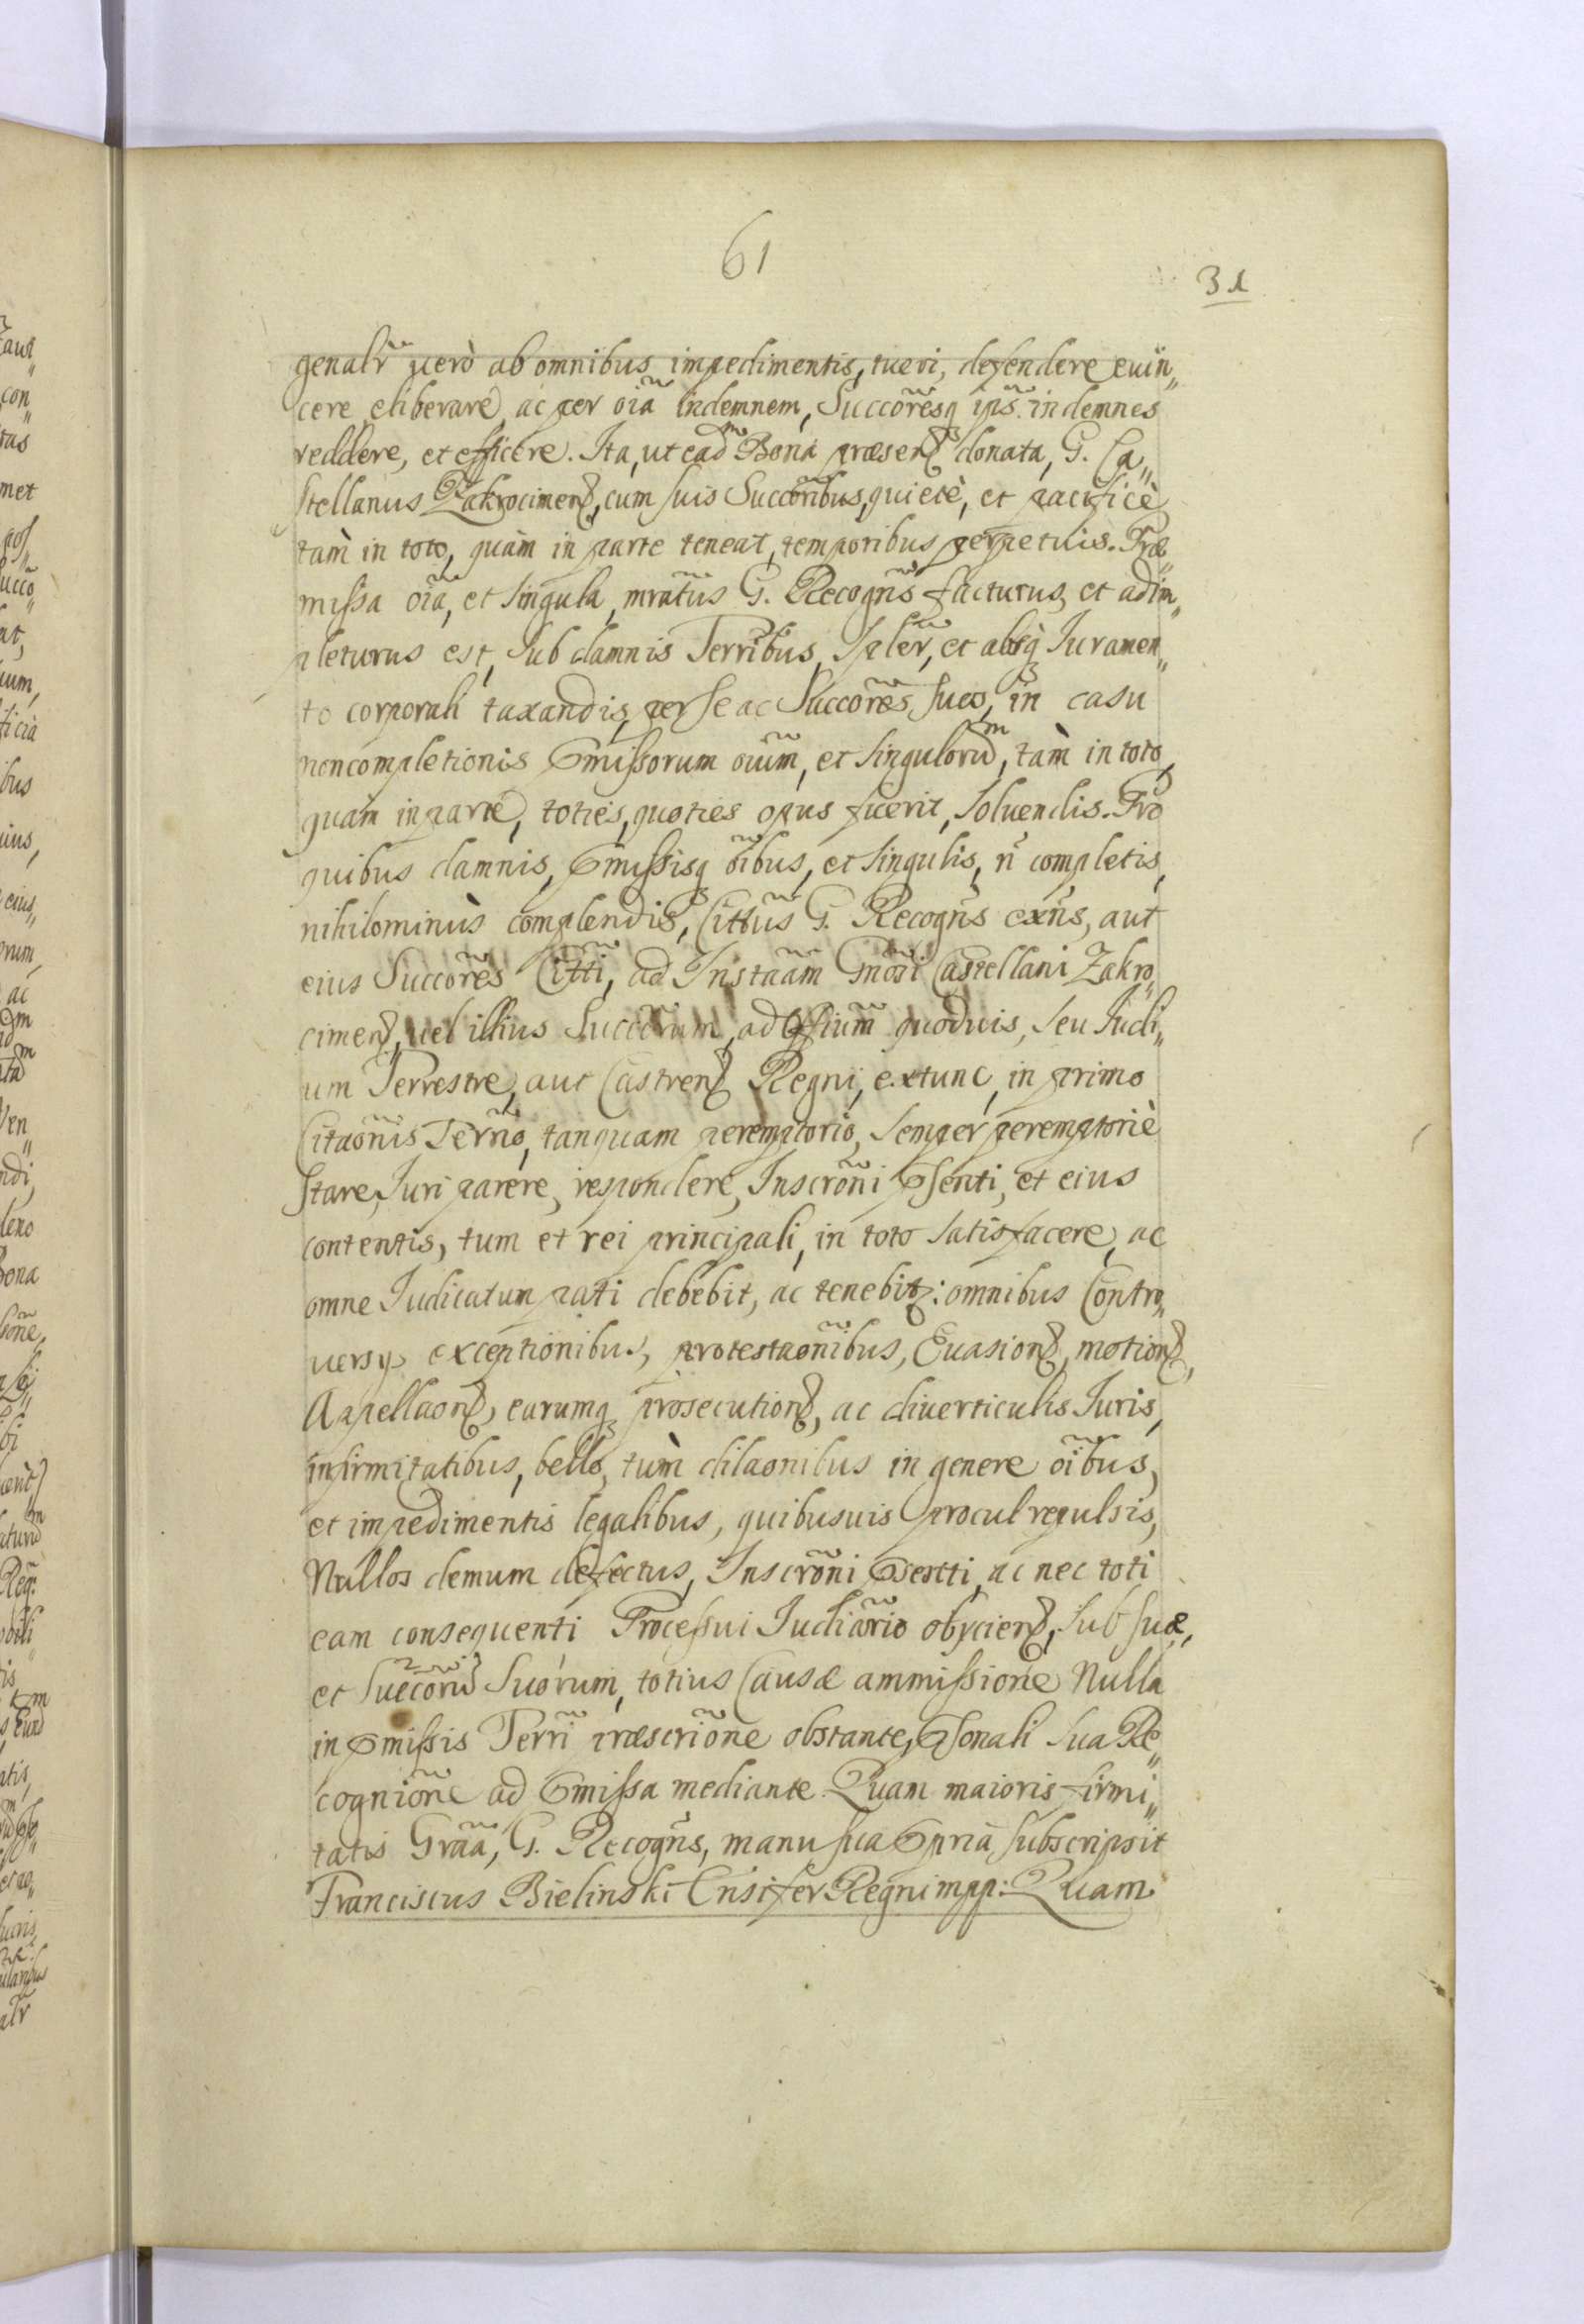 61
31
genalr̃ verò ab omnibus impedimentis, tueri, defendere euin„
cere eliberare, ac per oĩa indemnem, Succoresq̃ ip̃s. indemnes
reddere, et efficere. Ita, ut eadᵐ Bona præsenꝭ donata, G. Ca„
stellanus Zakrocimenꝭ, cum suis Succoribus, quietè, et pacificè
tam̀ in toto, quàm in parte teneat, temporibus perpetuis. Præ„
missa oĩa, et singula, mratus G. Recogñs facturus, et adim„
pleturus est, sub damnis Terribus, Splẽr, et absq̃ Iuramen„
to corporali taxandis, per se ac Succorẽs suos, in casu
noncompletionis Pmissorum oium̃, et singulorũᵐ, tam̀ in toto,
quam in parte, toties, quoties opus fuerit, soluendis. Pro
quibus damnis, Pmissisq̃ oĩbus, et singulis, ñ completis,
nihilominùs complendis, Cittus̃ G. Recogñs exñs, aut
eius Succorẽs Citti, ad Instaãm Gnosĩ Castellani Zakro„
cimenꝭ, uel illius Succorum, ad Offium̃ quoduis, seu Iudi„
um Terrestre, aut Castrenꝭ Regni, extunc, in primo
Citaonĩs Terño, tanquam peremptorio, semper peremptoriè
stare, Iuri parere, respondere, Inscroñi Psenti, et eius
contentis, tum et rei principali, in toto satisfacere, ac
omne Iudicatum pati debebit, ac tenebitꝛ: omnibus Contro„
uersys exceptionibus, protestaonĩbus, Euasionꝭ, motionꝭ,
Appellaonꝭ, earumq̃ prosecutionꝭ, ac diuerticulis Iuris,
infirmitatibus, bello, tùm dilaonibus in genere oĩbus,
et impedimentis legalibus, quibusuis procul repulsis,
Nullos demum defectus, Inscroñi Psenti, ac nec toti
eam consequenti Processui Iudiariõ obycienꝭ, sub suæ,
et Suecorũ suorum, totius Causæ ammissione Nulla
in Pmissis Terri præscrionẽ obstante, Psonali sua Re„
cognionẽ ad Pmissa mediante. Quam maioris firmi„
tatis Graã, G. Recogñs, manu sua Ppria subscripsit
Franciscus Bielinski Ensifer Regni mpp: Quam